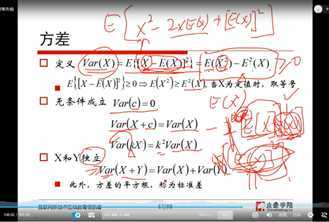 E[X²-2XE(X)+[E(X)]²]
方差
定义 Var(X) = E{[X-E(X)]²} = E(X²)-E²(X) ≥0
E{[X-E(X)]²}≥0 ⇒ E(X²)≥E²(X),当X为定值时，取等号
无条件成立 Var(c)=0
E(X)
Var(X+c)=Var(X)
Var(kX)=k²Var(X)
X和Y独立
Var(X+Y)=Var(X)+Var(Y)
此外，方差的平方根，称为标准差